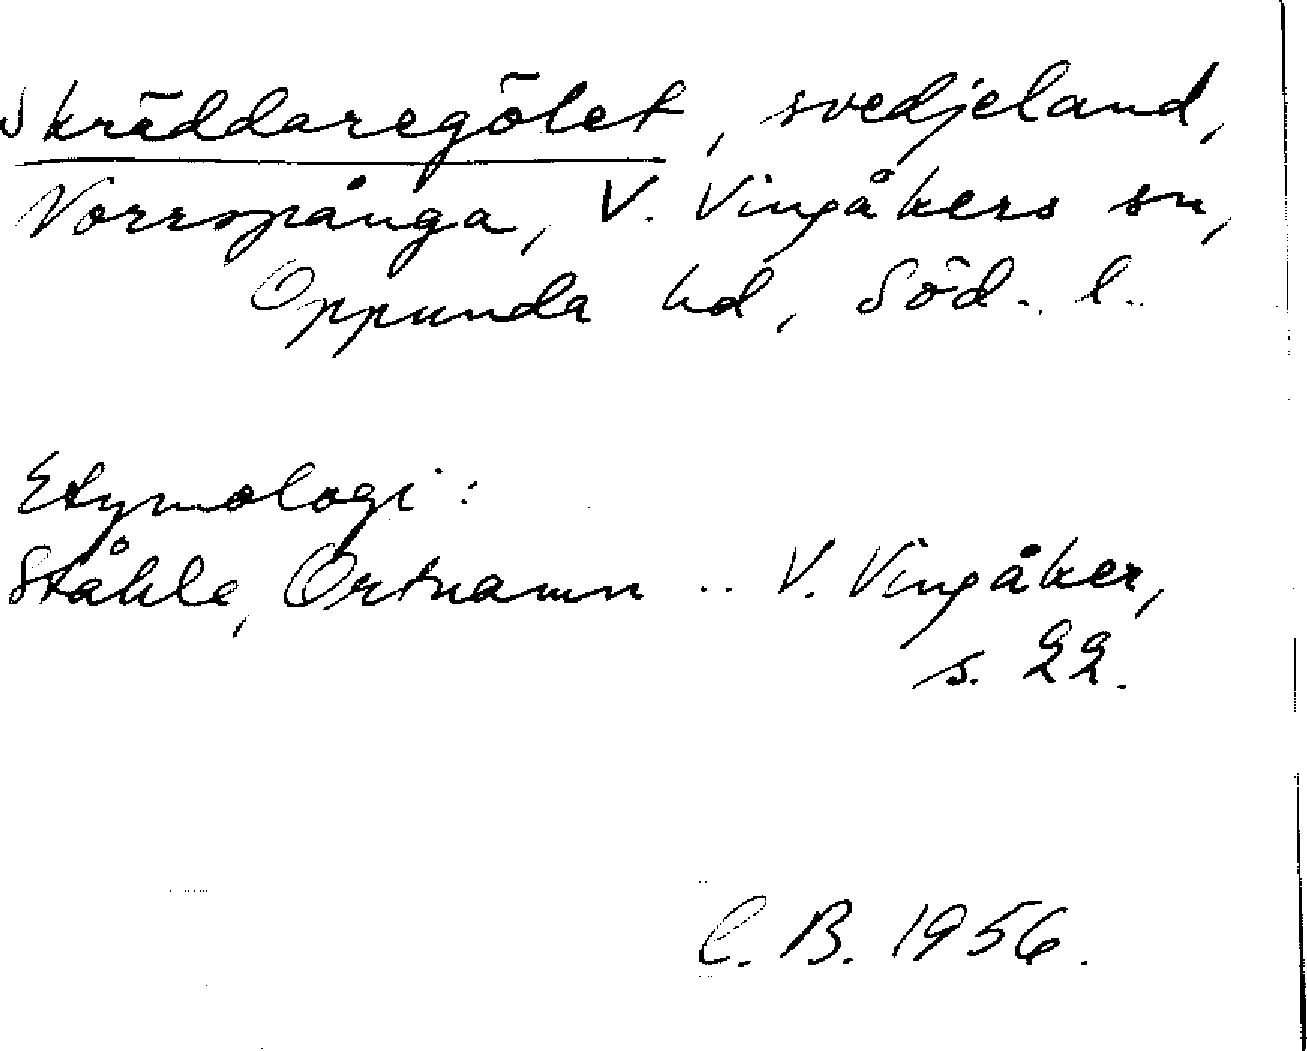 Skräddaregölet, svedjeland,
Vorrspånga, V. Vingåkers sn,
Oppunda hd, Söd. l.
Etymologi:
Ståhle, Ortnamn .. V. Vingåker,
s. 22.
C. B. 1956.